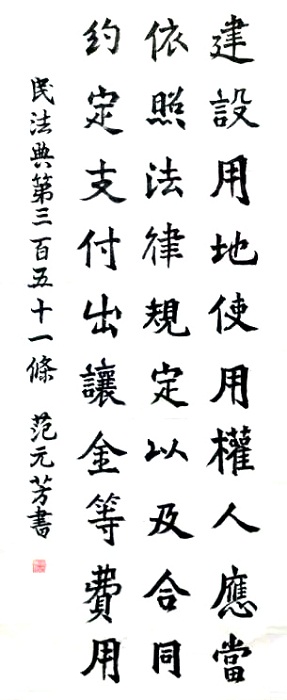 建設用地使用權人應當
依照法律規定以及合同
約定支付出讓金等費用
民法典第三百五十一條 范元芳書